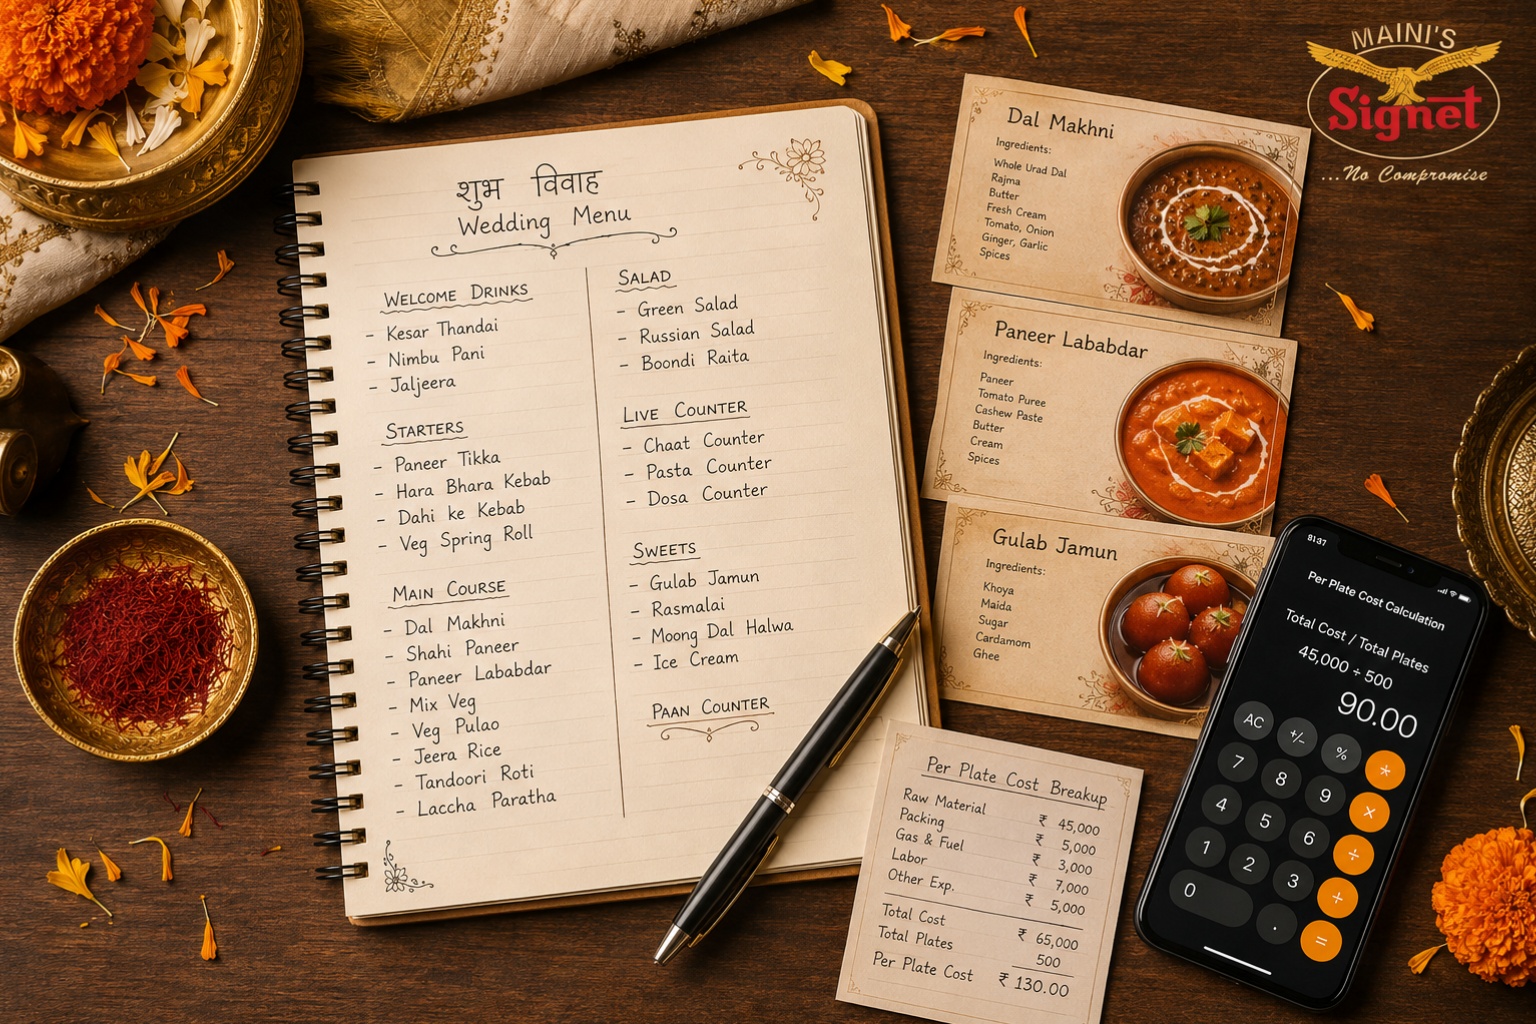 शुभ विवाह
Wedding Menu
WELCOME DRINKS
- Kesar Thandai
- Nimbu Pani
- Jaljeera
STARTERS
- Paneer Tikka
- Hara Bhara Kebab
- Dahi ke Kebab
- Veg Spring Roll
MAIN COURSE
- Dal Makhni
- Shahi Paneer
- Paneer Lababdar
- Mix Veg
- Veg Pulao
- Jeera Rice
- Tandoori Roti
- Laccha Paratha
SALAD
- Green Salad
- Russian Salad
- Boondi Raita
LIVE COUNTER
- Chaat Counter
- Pasta Counter
- Dosa Counter
SWEETS
- Gulab Jamun
- Rasmalai
- Moong Dal Halwa
- Ice Cream
PAAN COUNTER
Dal Makhni
Ingredients:
Whole Urad Dal
Rajma
Butter
Fresh Cream
Tomato, Onion
Ginger, Garlic
Spices
Paneer Lababdar
Ingredients:
Paneer
Tomato Puree
Cashew Paste
Butter
Cream
Spices
Gulab Jamun
Ingredients:
Khoya
Maida
Sugar
Cardamom
Ghee
Per Plate Cost Breakup
Raw Material ₹ 45,000
Packing ₹ 5,000
Gas & Fuel ₹ 3,000
Labor ₹ 7,000
Other Exp. ₹ 5,000
Total Cost ₹ 65,000
Total Plates 500
Per Plate Cost ₹ 130.00
8:37
Per Plate Cost Calculation
Total Cost / Total Plates
45,000 ÷ 500
90.00
AC +/- % *
7 8 9 ×
4 5 6 ÷
1 2 3 +
0 . =
MAINI'S
Signet
...No Compromise